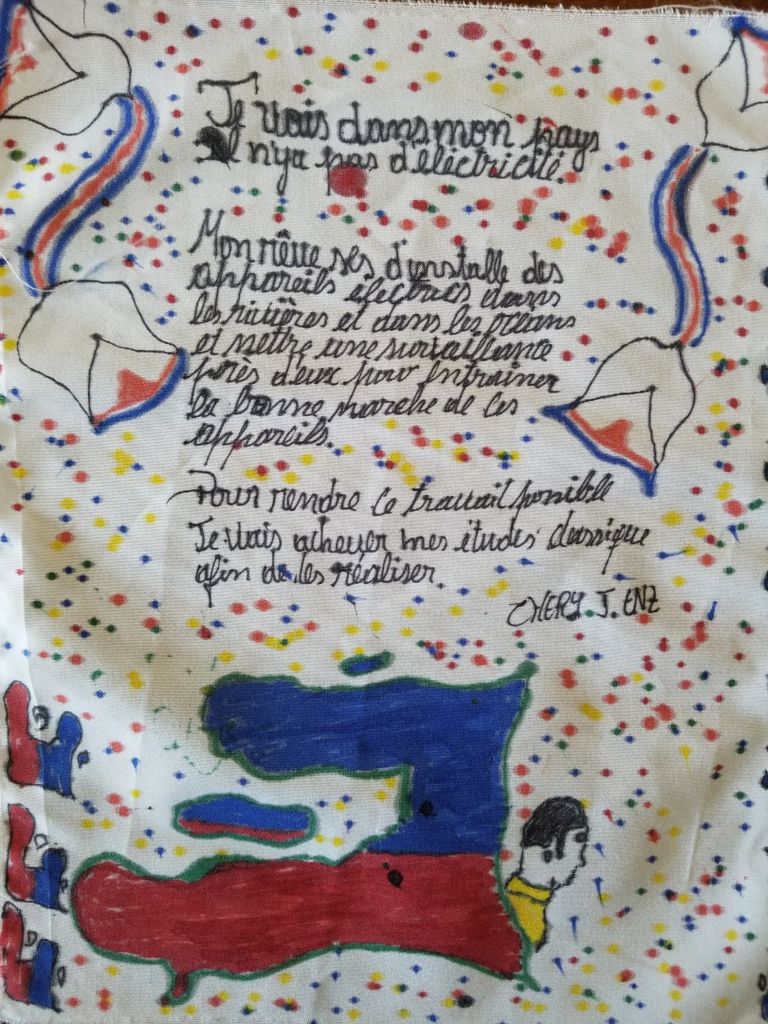 Je vais dans mon pays
Il n'ya pas d'électricité
Mon rêve ses d'installe des
appareils électrics dans
les rivières et dans les Oceans
et mettre une survaillance
près d'eux pour Entrainer
la bonne marche de Ces
appareils.
Pour rendre Ce travail possible
Je vais achever mes études classique
afin de les réaliser.
CHERY. J. ENZ